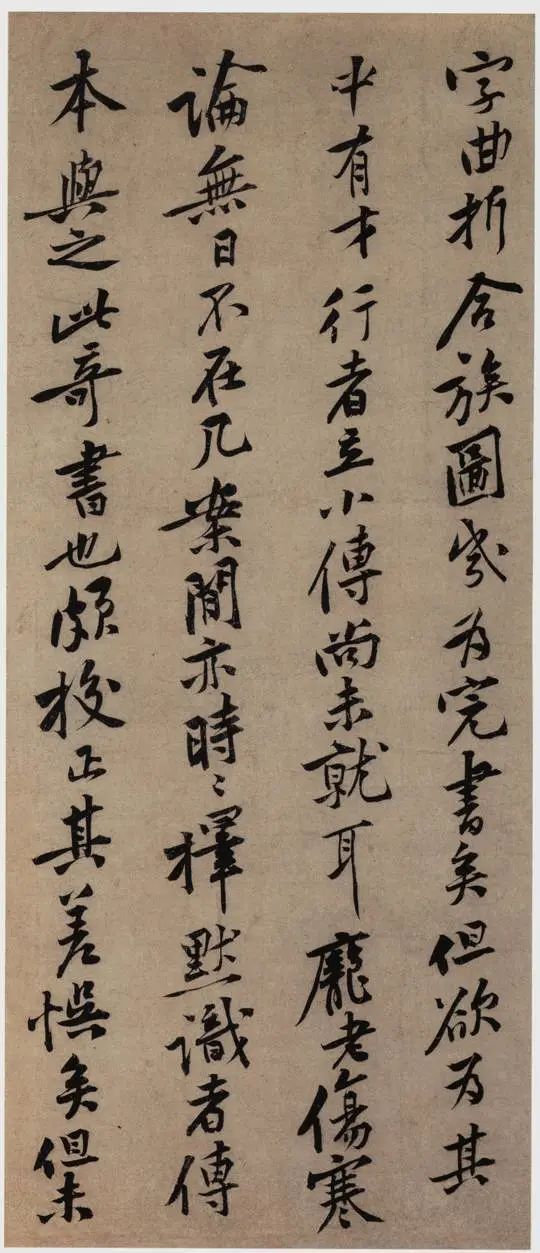 字曲折合族圖岁为完書矣但欲为其
中有才行者立小傳尚未就耳龐老傷寒
論無日不在几案間亦時〻擇默識者傳
本與之此奇書也頗校正其差悮矣但未